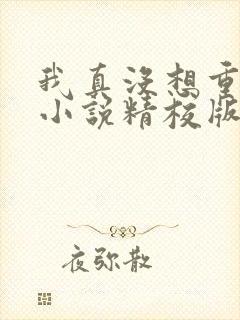 我真没想重
小说精校版
夜弥散